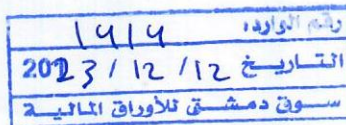 رقم الوارد: 1919
التاريخ 2023 / 12 / 12
سوق دمشق للأوراق المالية